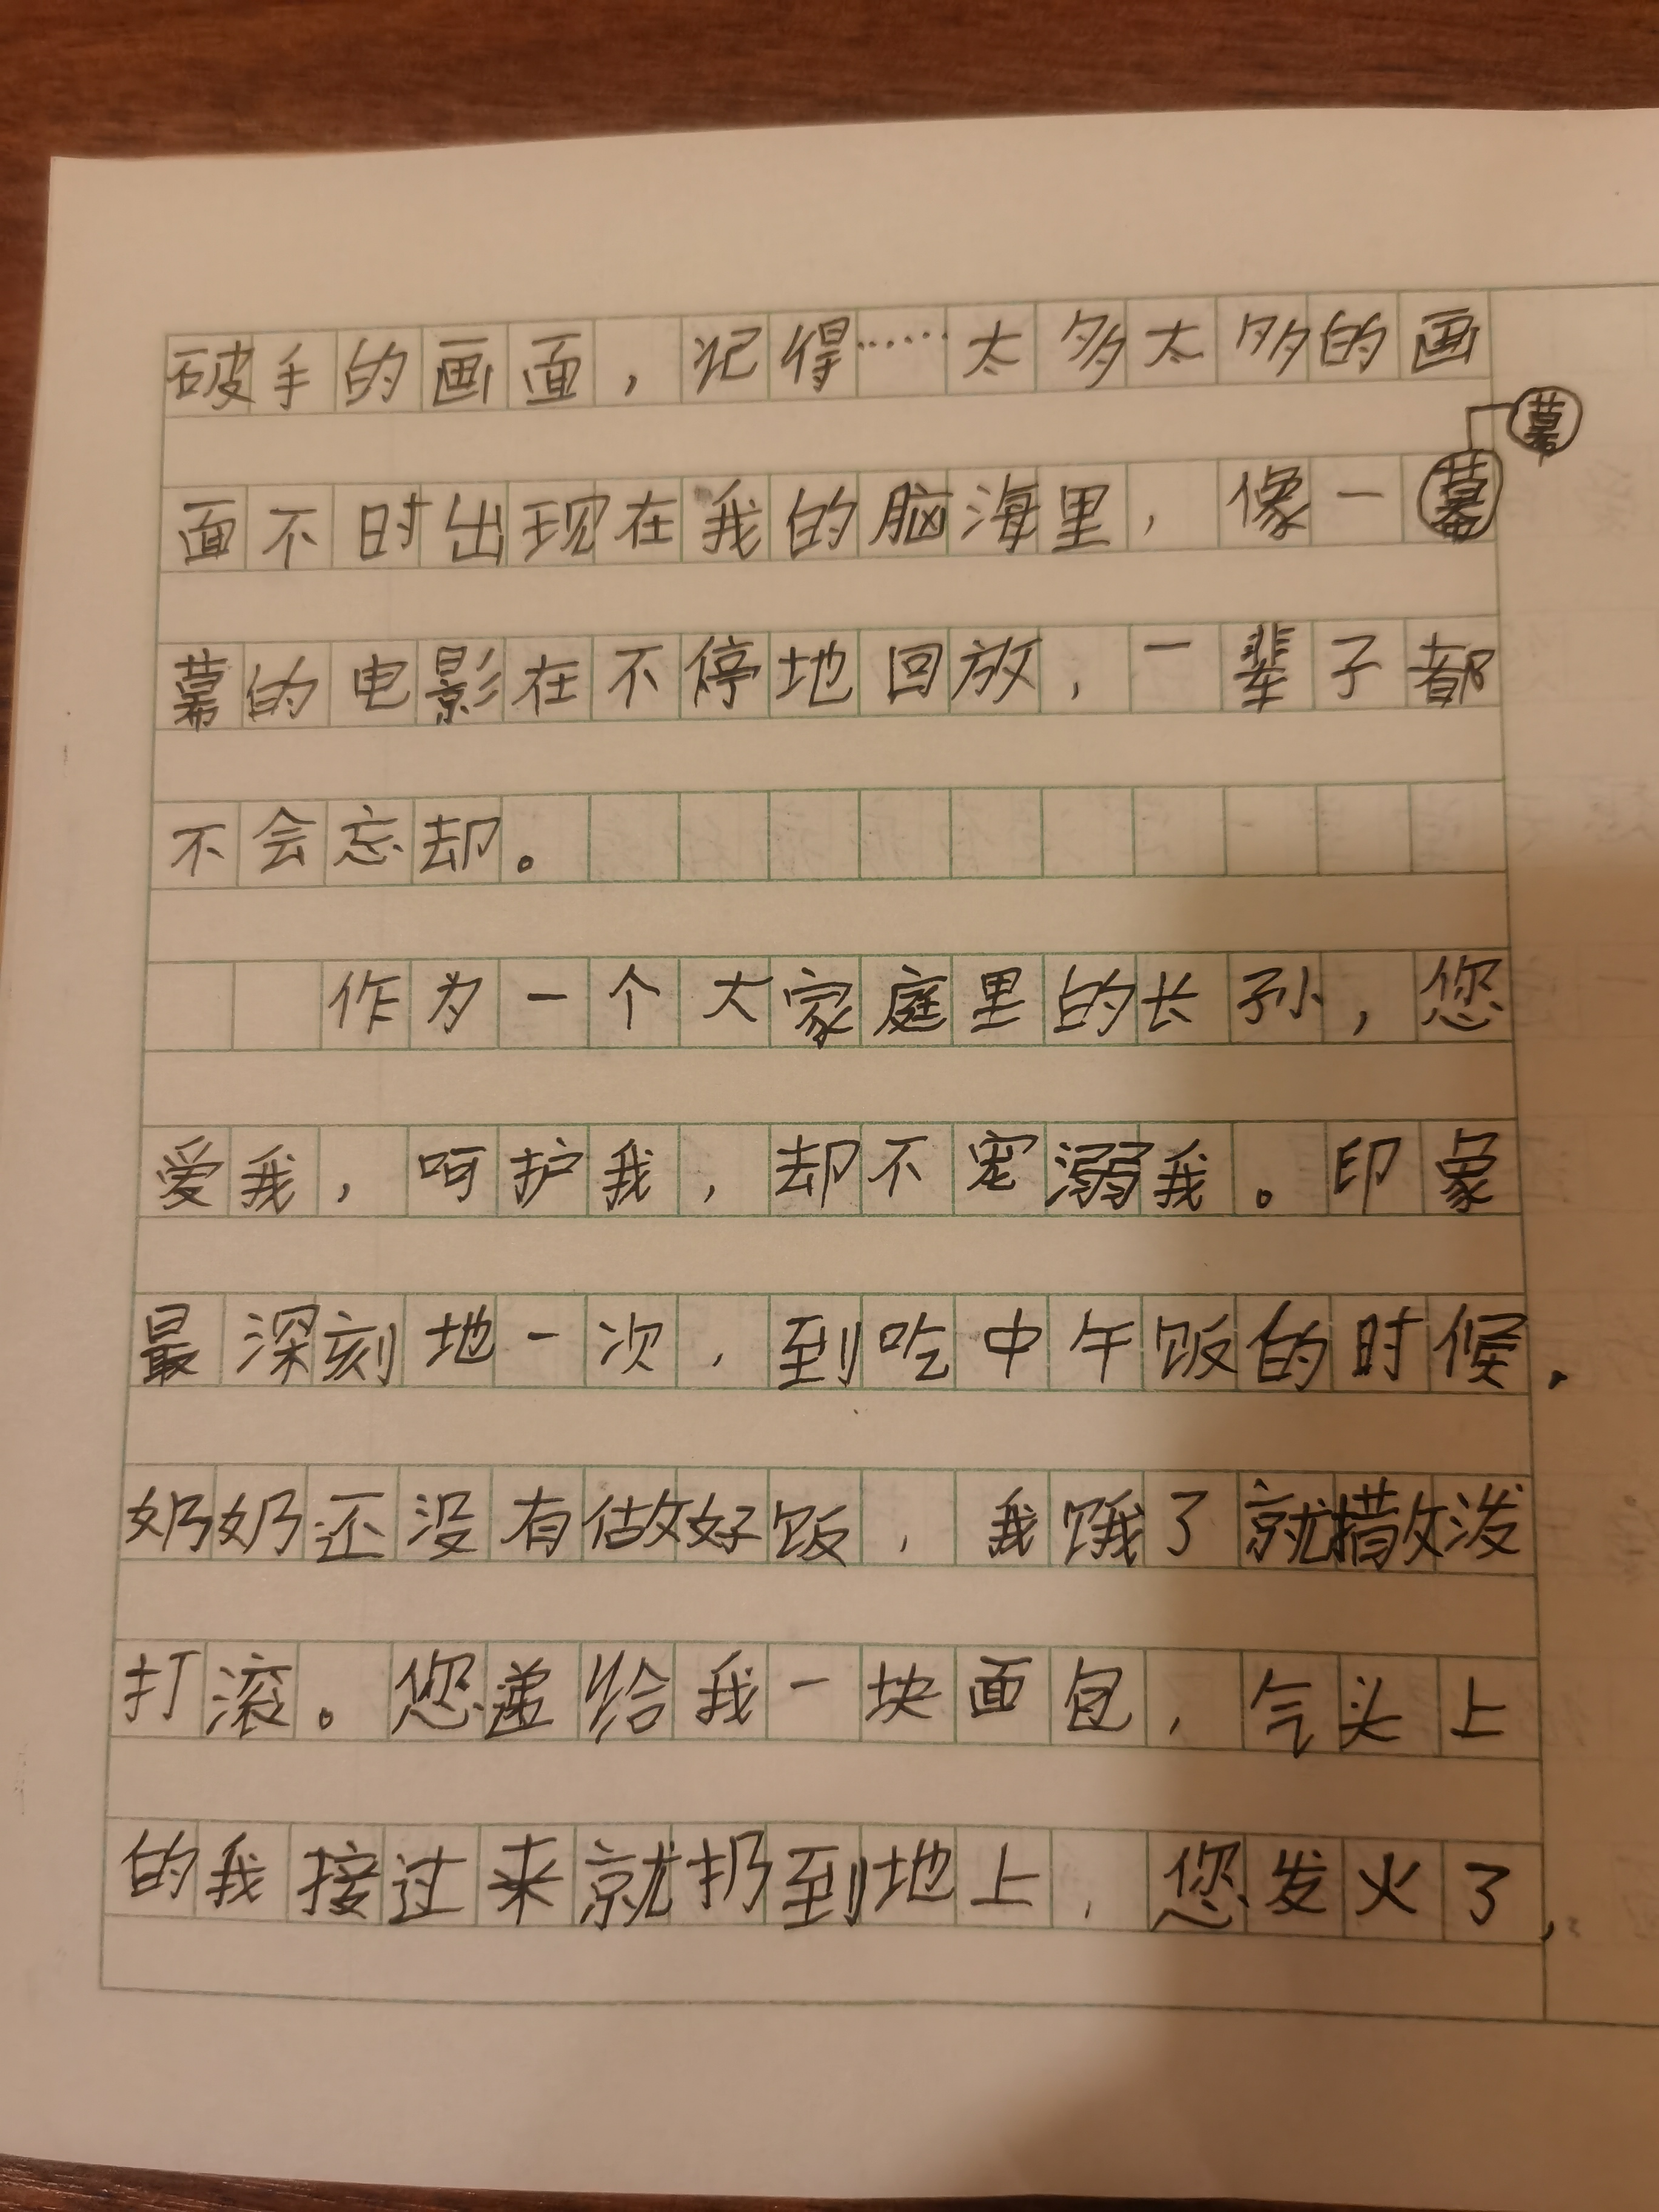 破手的画面，记得……太多太多的画
幕
面不时出现在我的脑海里，像一幕
幕的电影在不停地回放，一辈子都
不会忘却。
作为一个大家庭里的长孙，您
爱我，呵护我，却不宠溺我。印象
最深刻地一次，到吃中午饭的时候，
奶奶还没有做好饭，我饿了就撒泼
打滚。您递给我一块面包，气头上
的我接过来就扔到地上，您发火了，